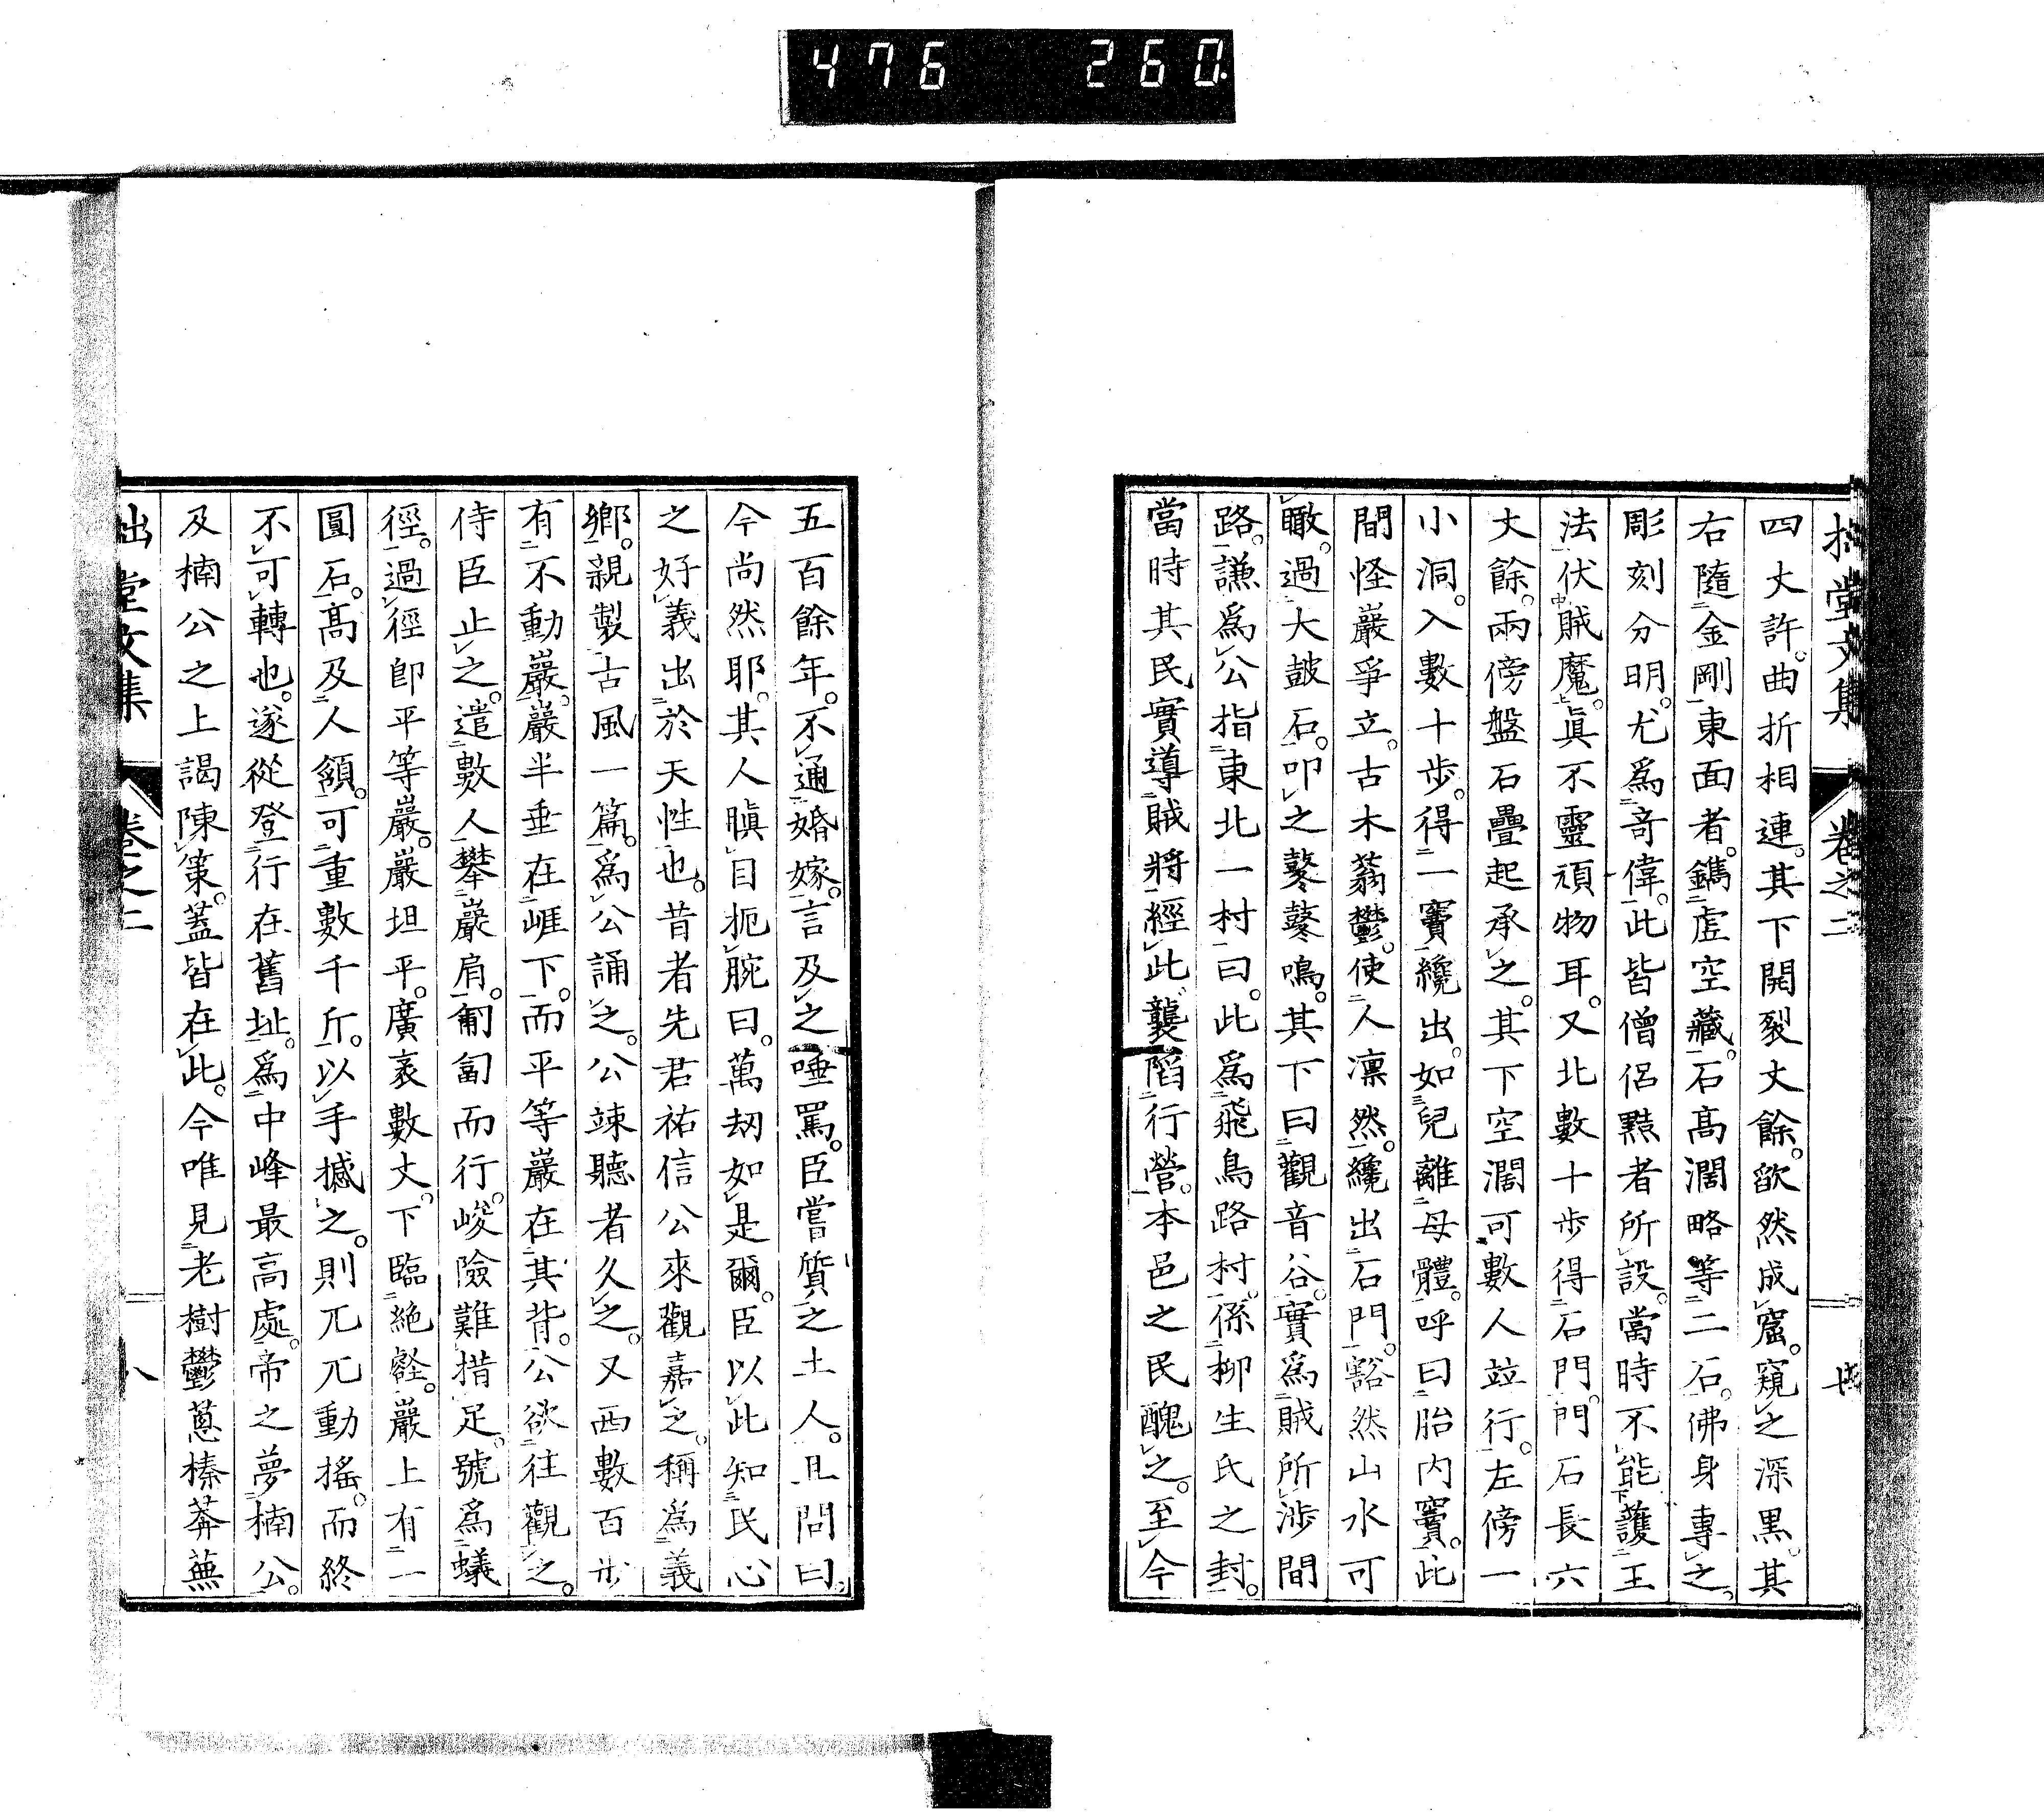 476 260.
拙堂文集 卷之二
四丈許。曲折相連。其下開裂丈餘。欿然成窟。窺之深黒。其
右隨金剛東面者。鐫虚空藏。石高濶略等二石。佛身專之。
彫刻分明。尤爲奇偉。此皆僧侶黠者所設。當時不能護王
法伏賊魔。眞不靈頑物耳。又北數十步得石門。門石長六
丈餘。兩傍盤石疊起承之。其下空濶可數人竝行。左傍一
小洞。入數十步。得一竇。纔出。如兒離母體。呼曰胎内竇。此
間怪巖爭立。古木蓊鬱。使人凛然。纔出石門。豁然山水可
瞰。過大皷石。叩之鼕鼕鳴。其下曰觀音谷。實爲賊所渉間
路。謙爲公指東北一村曰。此爲飛鳥路村。係柳生氏之封。
當時其民實導賊將經此襲陷行營。本邑之民醜之。至今
五百餘年。不通婚嫁。言及之唾罵。臣嘗質之土人。且問曰。
今尚然耶。其人瞋目扼腕曰。萬刼如是爾。臣以此知民心
之好義出於天性也。昔者先君祐信公來觀嘉之。稱爲義
鄉。親製古風一篇。爲公誦之。公竦聽者久之。又西數百步
有不動巖。巖半垂在崕下。而平等巖在其背。公欲往觀之。
侍臣止之。遣數人攀巖肩。匍匐而行。峻險難措足。號爲蟻
徑。過徑即平等巖。巖坦平。廣袤數丈。下臨絶壑。巖上有一
圓石。高及人頷。可重數千斤。以手撼之。則兀兀動搖。而終
不可轉也。遂從登行在舊址。爲中峰最高處。帝之夢楠公。
及楠公之上謁陳策。蓋皆在此。今唯見老樹鬱蔥榛莽蕪
拙堂文集 卷之二 八